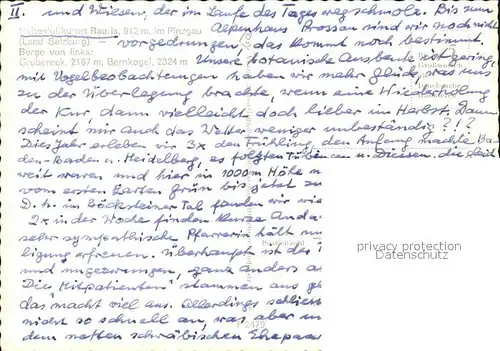 II. und Wiesen, der im Laufe des Tages wegschmolz. Bis zum
Alpenhaus Prossau sind wir noch nicht
Höhenluftkurort Rauris, 912 m, im Pinzgau
(Land Salzburg);
vorgedrungen, das kommt noch bestimmt.
Berge von links:
Grubereck, 2167 m, Bernkogel, 2324 m
Unsere botanische Ausbeute ist gering,
mit Vogelbeobachtungen haben wir mehr Glück, was uns
zu der Überlegung brachte, wenn eine Wiederholung
der Kur, dann vielleicht doch lieber im Herbst. Dann
scheint mir auch das Wetter weniger unbeständig?!?
Dies Jahr erleben wir 3x den Frühling, den Anfang machte Ba-
den-Baden u. Heidelberg, es folgten Tübingen u. Giessen, die gleich
weit waren und hier in 1000 m Höhe
vom ersten zarten Grün bis jetzt
D. h. im Böcksteiner Tal fanden wir
2x in der Woche finden kurze
sehr sympathische Pfarrerin hält
ligung erfreuen. Überhaupt ist das
und ungezwungen, ganz anders
Die "Mitpatienten" stammen aus
das macht viel aus. Allerdings
nicht so schnell an, was aber
dem netten schwäbischen Ehepaar
Postleitzahl
2479
privacy protection
Datenschutz